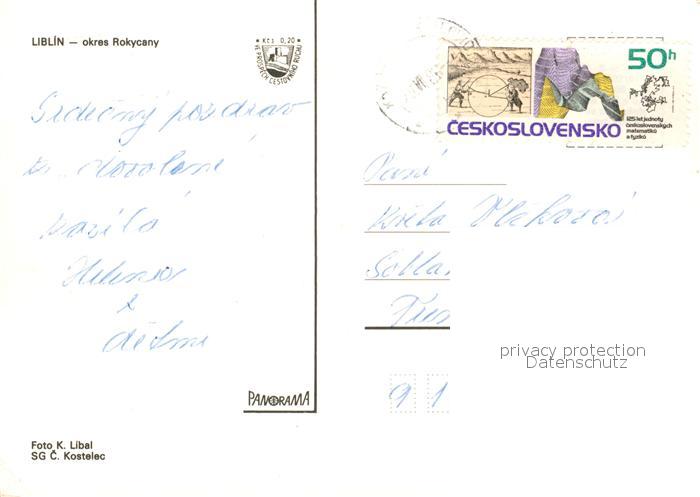 LIBLÍN — okres Rokycany
Kčs 0,20
VE PROSPĚCH CESTOVNÍHO RUCHU
50h
125 let jednoty
československých
matematiků
a fyziků
ČESKOSLOVENSKO
Srdečný pozdrav
z dovolené
posílá
Helena
s
dětmi
Paní
Květa
privacy protection
Datenschutz
9 1
PANORAMA
Foto K. Líbal
SG Č. Kostelec